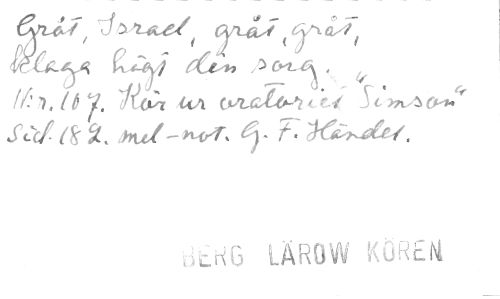 Gråt, Israel, gråt, gråt,
klaga högt din sorg.
Nr. 107. Kör ur oratoriet "Simson"
Sid. 182. mel-not. G. F. Händel.
BERG LÄROW KÖREN